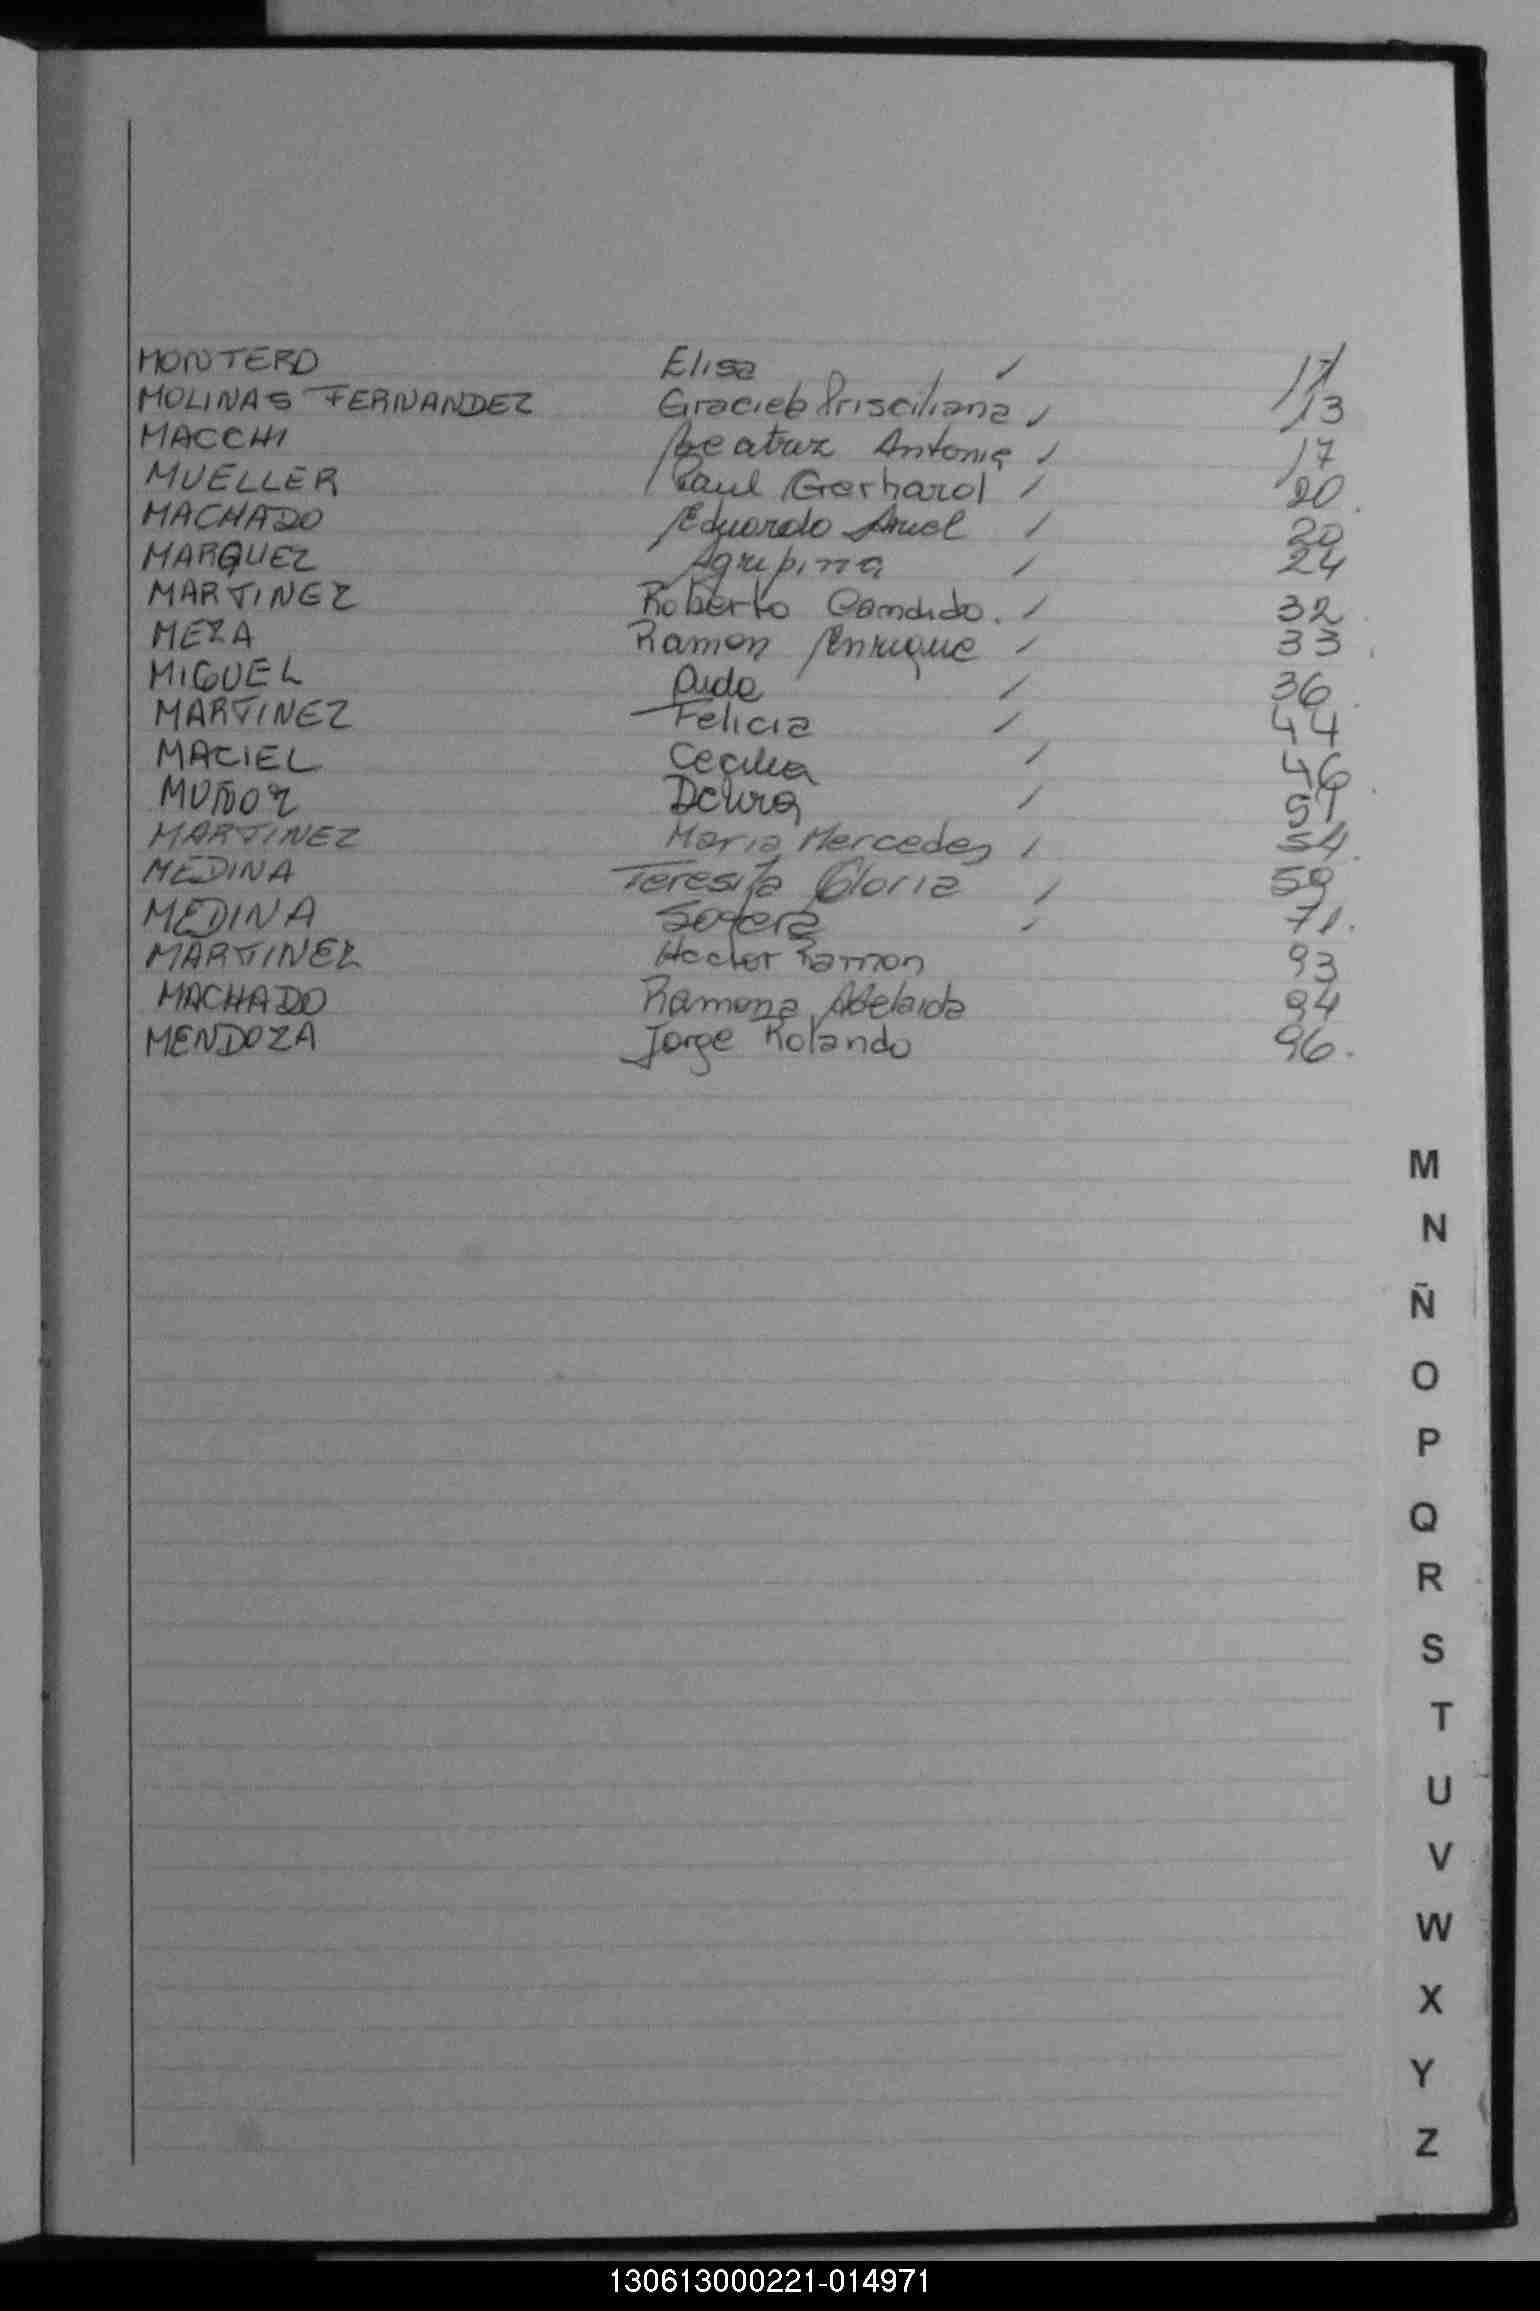 MONTERO Elisa ✓
MOLINAS FERNANDEZ Graciela Prisciliana ✓ 13
MACCHI Beatriz Antonia ✓ 17
MUELLER Paul Gerhard ✓ 20
MACHADO Eduardo Ariel ✓ 20
MARQUEZ Agripina ✓ 24
MARTINEZ Roberto Candido. ✓ 32
MEZA Ramon Enrique ✓ 33
MIGUEL Aida ✓ 36
MARTINEZ Felicia ✓ 44
MACIEL Cecilia ✓ 46
MUÑOZ ✓ 51
MARTINEZ Maria Mercedes ✓ 54
MEDINA Teresita Gloria ✓ 59
MEDINA ✓ 71.
MARTINEZ Hector Ramon 93
MACHADO Ramona Adelaida 94
MENDOZA Jorge Rolando 96.
M
N
Ñ
O
P
Q
R
S
T
U
V
W
X
Y
Z
130613000221-014971